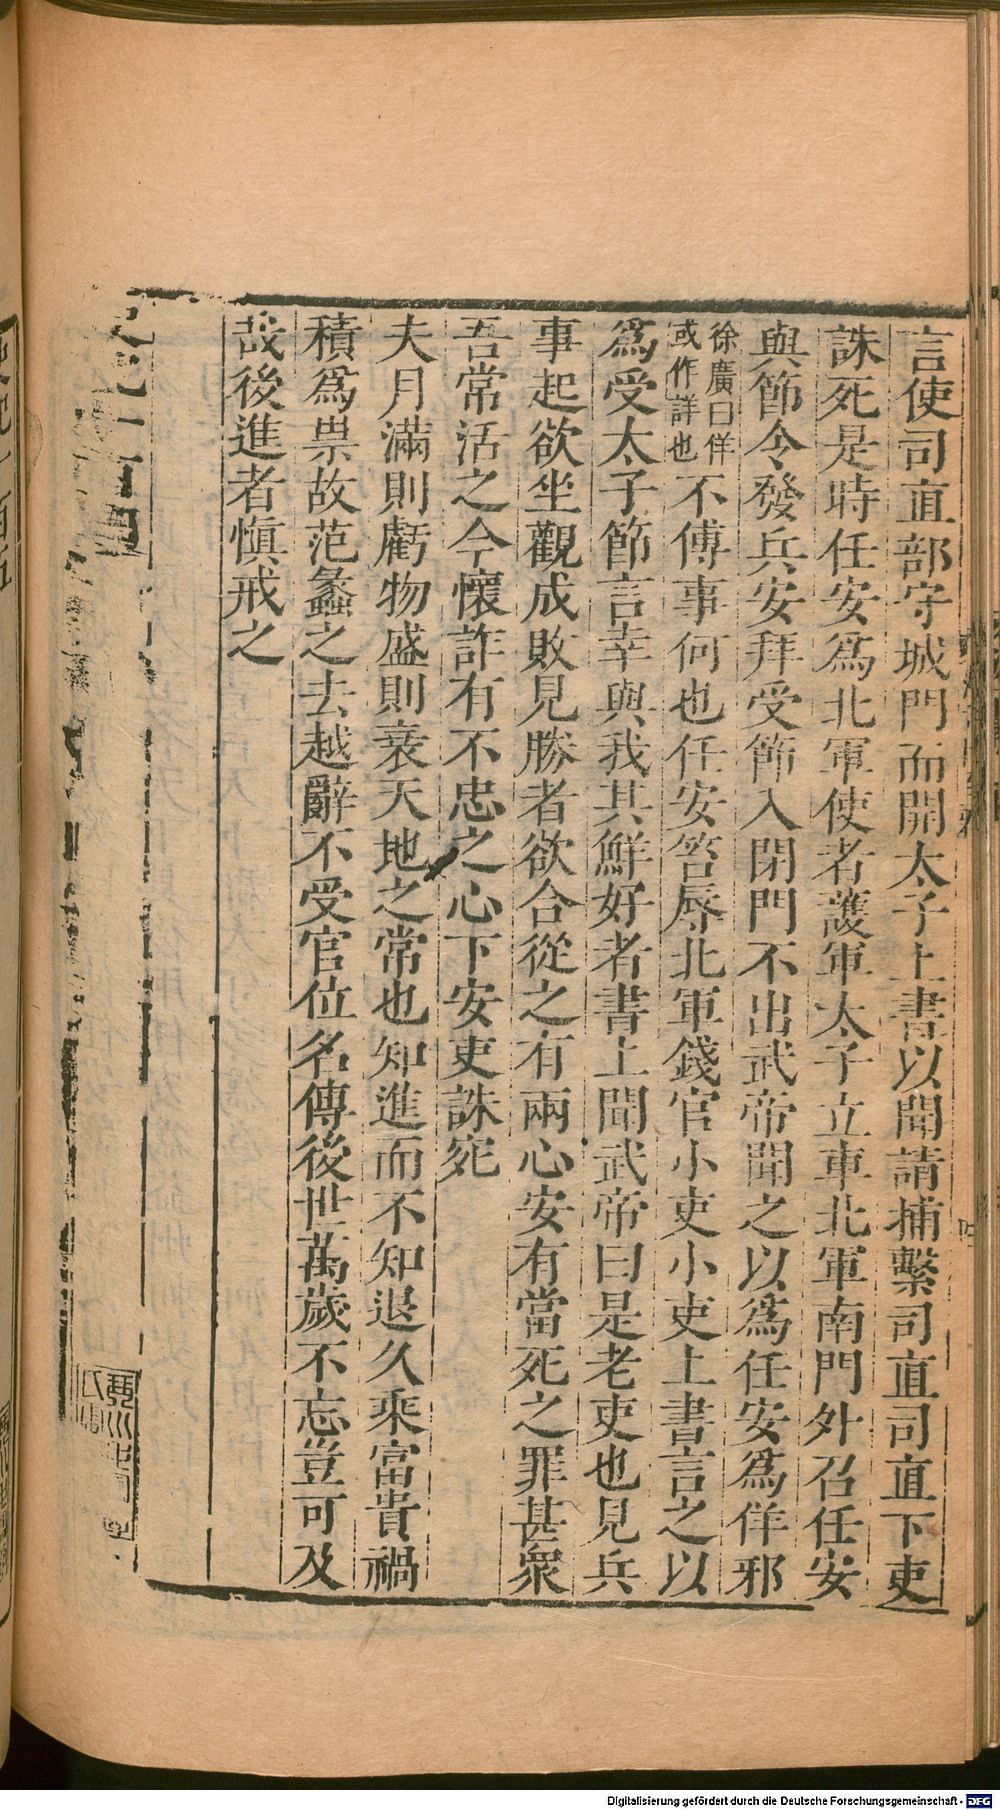 言使司直部守城門而開太子上書以聞請捕繫司直司直下吏
誅死是時任安爲北軍使者護軍太子立車北軍南門外召任安
與節令發兵安拜受節入閉門不出武帝聞之以爲任安爲佯邪
徐廣曰佯
或作詳也
不傅事何也任安笞辱北軍錢官小吏小吏上書言之以
爲受太子節言幸與我其鮮好者書上聞武帝曰是老吏也見兵
事起欲坐觀成敗見勝者欲合從之有兩心安有當死之罪甚衆
吾常活之今懷詐有不忠之心下安吏誅死
夫月滿則虧物盛則衰天地之常也知進而不知退久乘富貴禍
積爲祟故范蠡之去越辭不受官位名傳後世萬歲不忘豈可及
哉後進者愼戒之
史記一百四
Digitalisierung gefördert durch die Deutsche Forschungsgemeinschaft - DFG